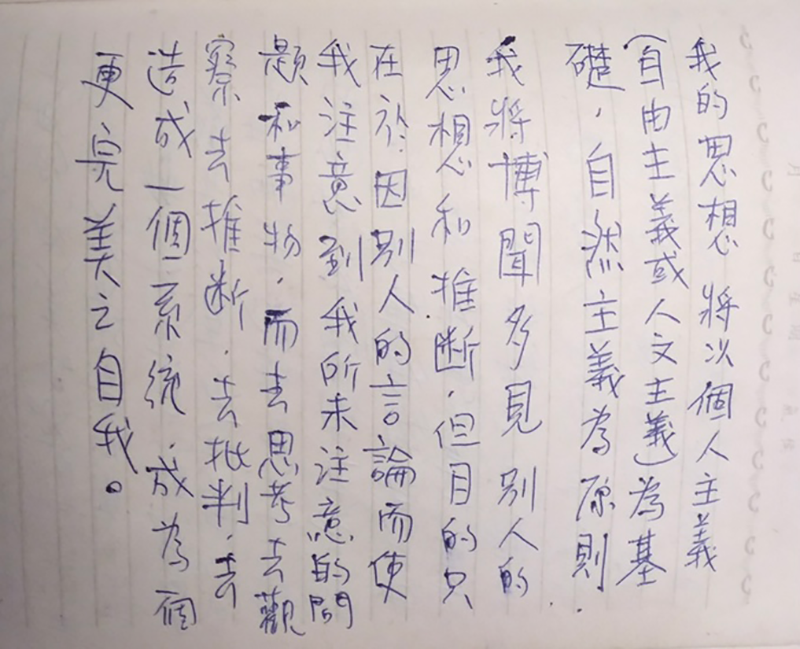 我的思想將以個人主義
(自由主義或人文主義)為基
礎，自然主義為原則．
我將博聞多見別人的
思想和推斷，但目的只
在於因別人的言論而使
我注意到我所未注意的問
題和事物，而去思考去觀
察去推斷，去批判，去
造成一個系統，成為一個
更完美之自我。